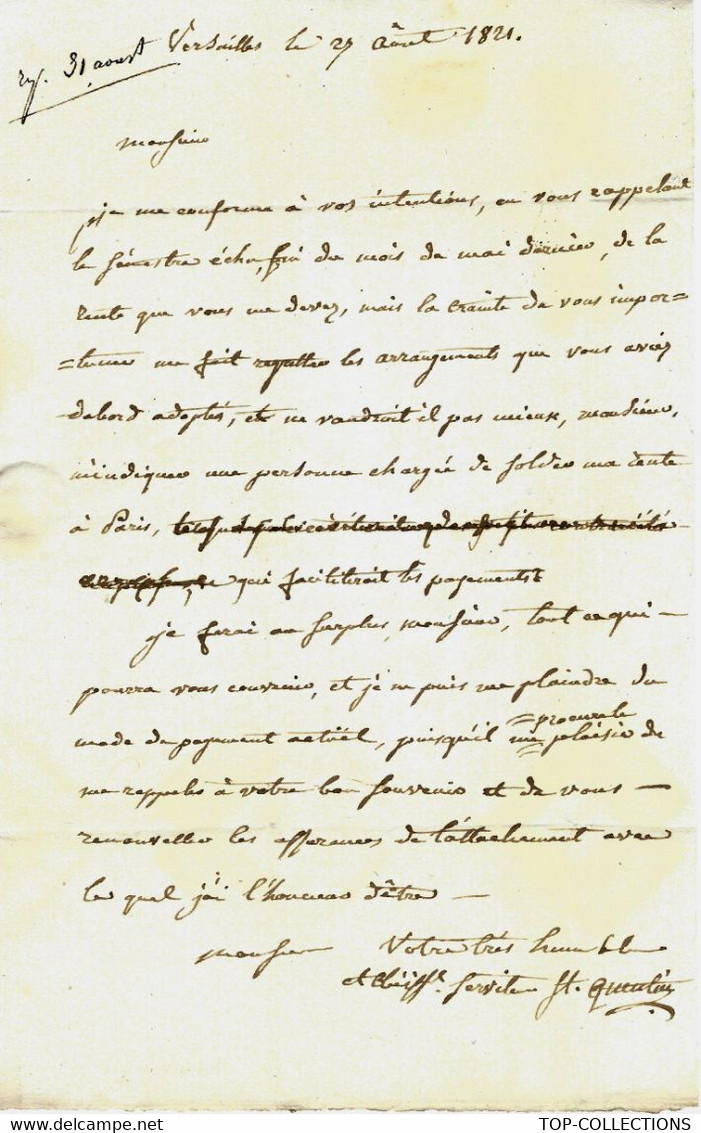 Versailles le 27 Août 1821.
rép. 31 aoust
Monsieur
je me conforme à vos intentions, en vous rappelant
le semestre échu, fin du mois de mai dernier, de la
rente que vous me devez, mais la crainte de vous impor=
=tuner me fait regretter les arrangements que vous aviez
dabord adoptés, et ne vaudroit il pas mieux, monsieur,
m'indiquer une personne chargée de solder ma rente
à Paris,
qui faciliteroit les payements
je ferai au surplus, monsieur, tout ce qui –
pourra vous convenir, et je ne puis me plaindre du
=procure le
mode de payement actuel, puisqu'il me = plaisir de
me rappeler à votre bon souvenir et de vous –
renouveller les assurances de l'attachement avec
le quel j'ai l'honneur d'être –
Monsieur Votre très humble
et obéisst. serviteur St. Quentin
TOP-COLLECTIONS